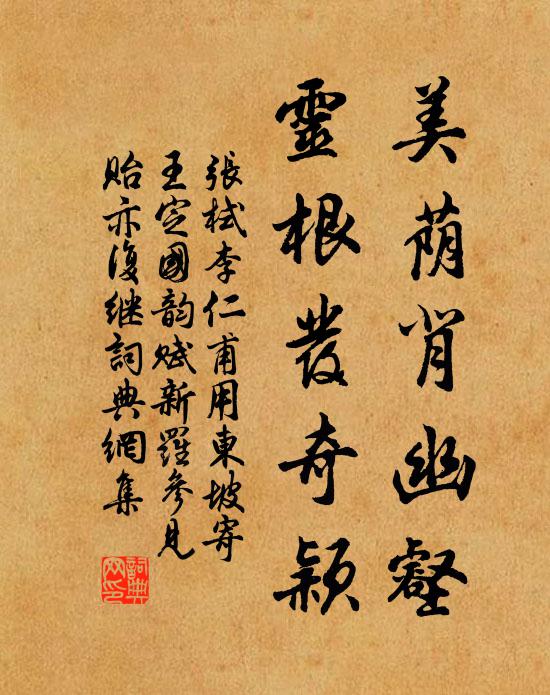 美荫背幽壑
靈根發奇穎
張栻李仁甫用東坡寄
王定國韵賦新羅參見
貽亦復继詞典網集
詞典网印